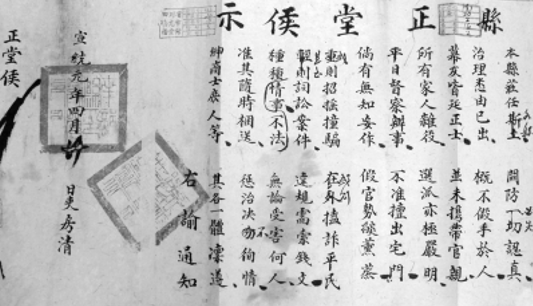 縣正堂侯示
本縣莅任斯土 關防一切認真
治理悉由己出 概不假手於人
幕友皆延正士 並未攜帶官親
所有家人雜役 選派亦極嚴明
平日督察辦事 不准擅出宅門
倘有無知妄作 假官勢燄薰蒸
重則招搖撞騙 在外搕詐平民
則詞訟案件 違規需索錢文
種種情事不法 無論受害何人
准其隨時捆送 懲治決不徇情
紳商士庶人等 其各一體凜遵
右諭通知
宣統元年四月 日吏房清
正堂侯